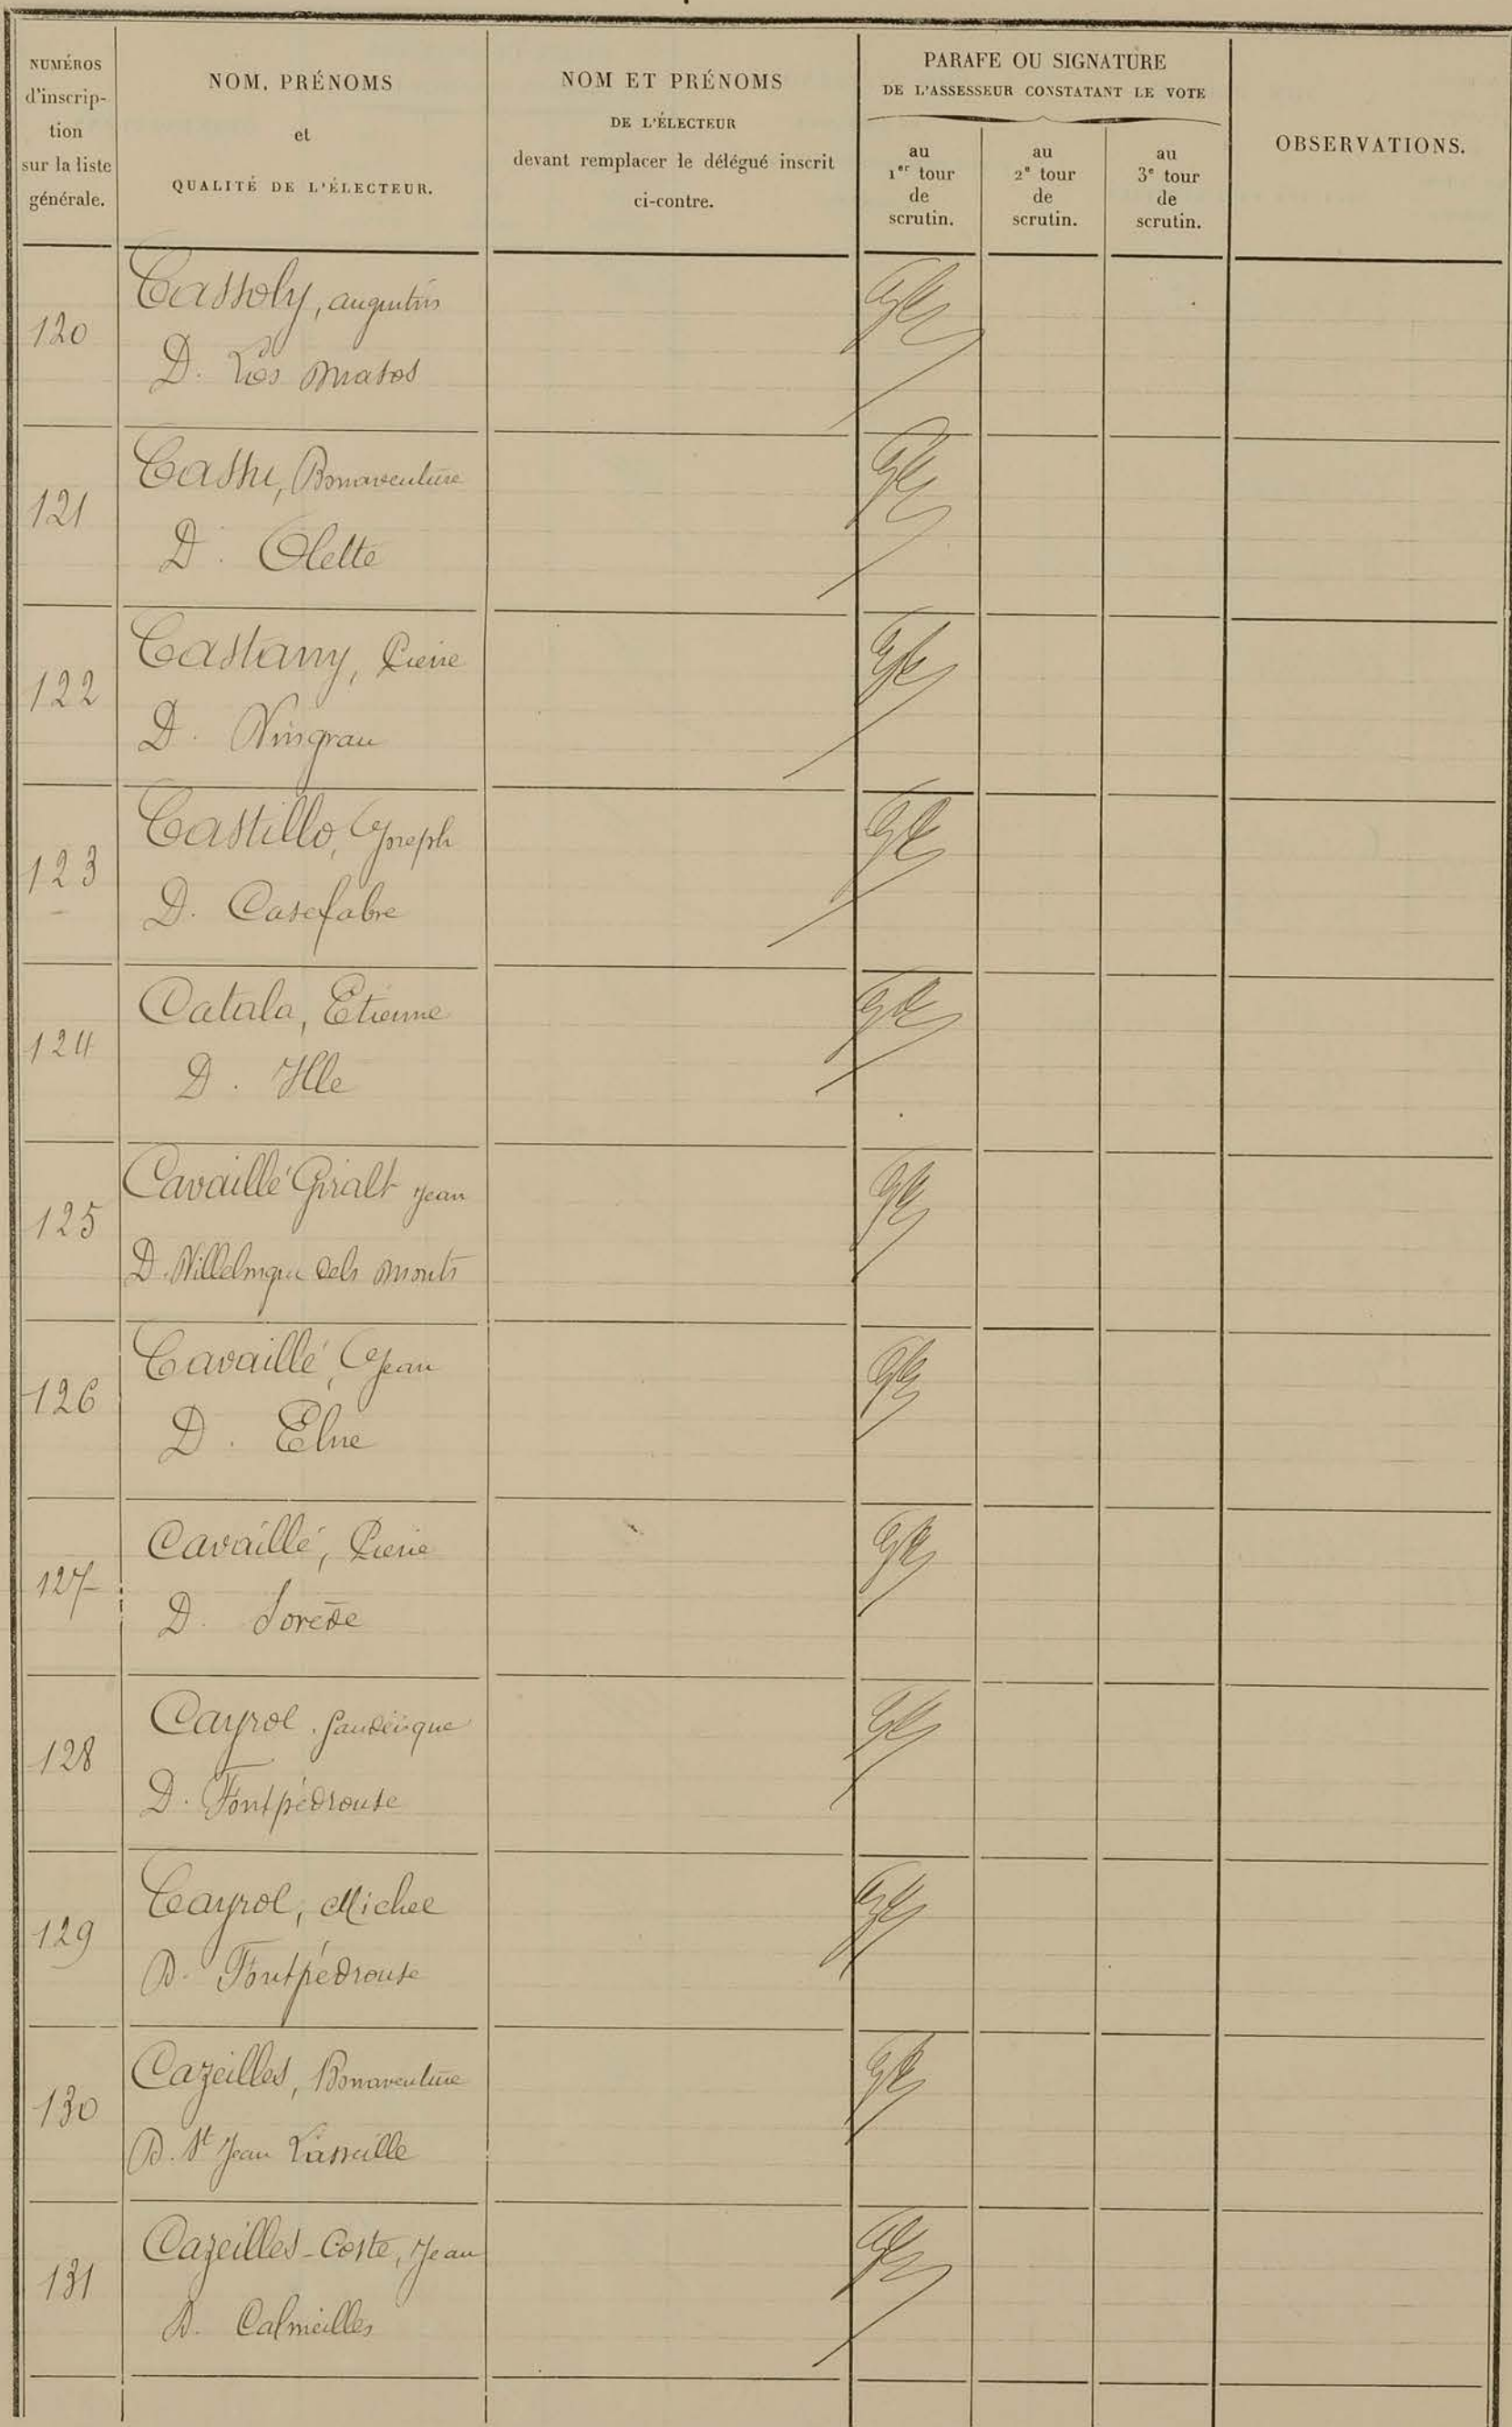 NUMÉROS
d'inscrip-
tion
sur la liste
générale.
NOM, PRÉNOMS
et
QUALITÉ DE L'ÉLECTEUR.
NOM ET PRÉNOMS
DE L'ÉLECTEUR
devant remplacer le délégué inscrit
ci-contre.
PARAFE OU SIGNATURE
DE L'ASSESSEUR CONSTATANT LE VOTE
au
1er tour
de
scrutin.
au
2e tour
de
scrutin.
au
3e tour
de
scrutin.
OBSERVATIONS.
120
Cassoly, augustin
D. Los Masos
121
Bonaventure
D. Olette
122
Castany, Pierre
D. Vingrau
123
Castillo, Joseph
D. Casefabre
124
Catala, Etienne
D. Ille
125
Cavaillé Giralt Jean
D. dels Monts
126
Cavaillé, Jean
D. Elne
127
Cavaillé, Pierre
D. Sorède
128
Cayrol, Gaudérique
D. Fontpédrouse
129
Cayrol, Michel
D. Fontpédrouse
130
Cazeilles, Bonaventure
D. St Jean Lasseille
131
Cazeilles-Coste, Jean
D. Calmeilles